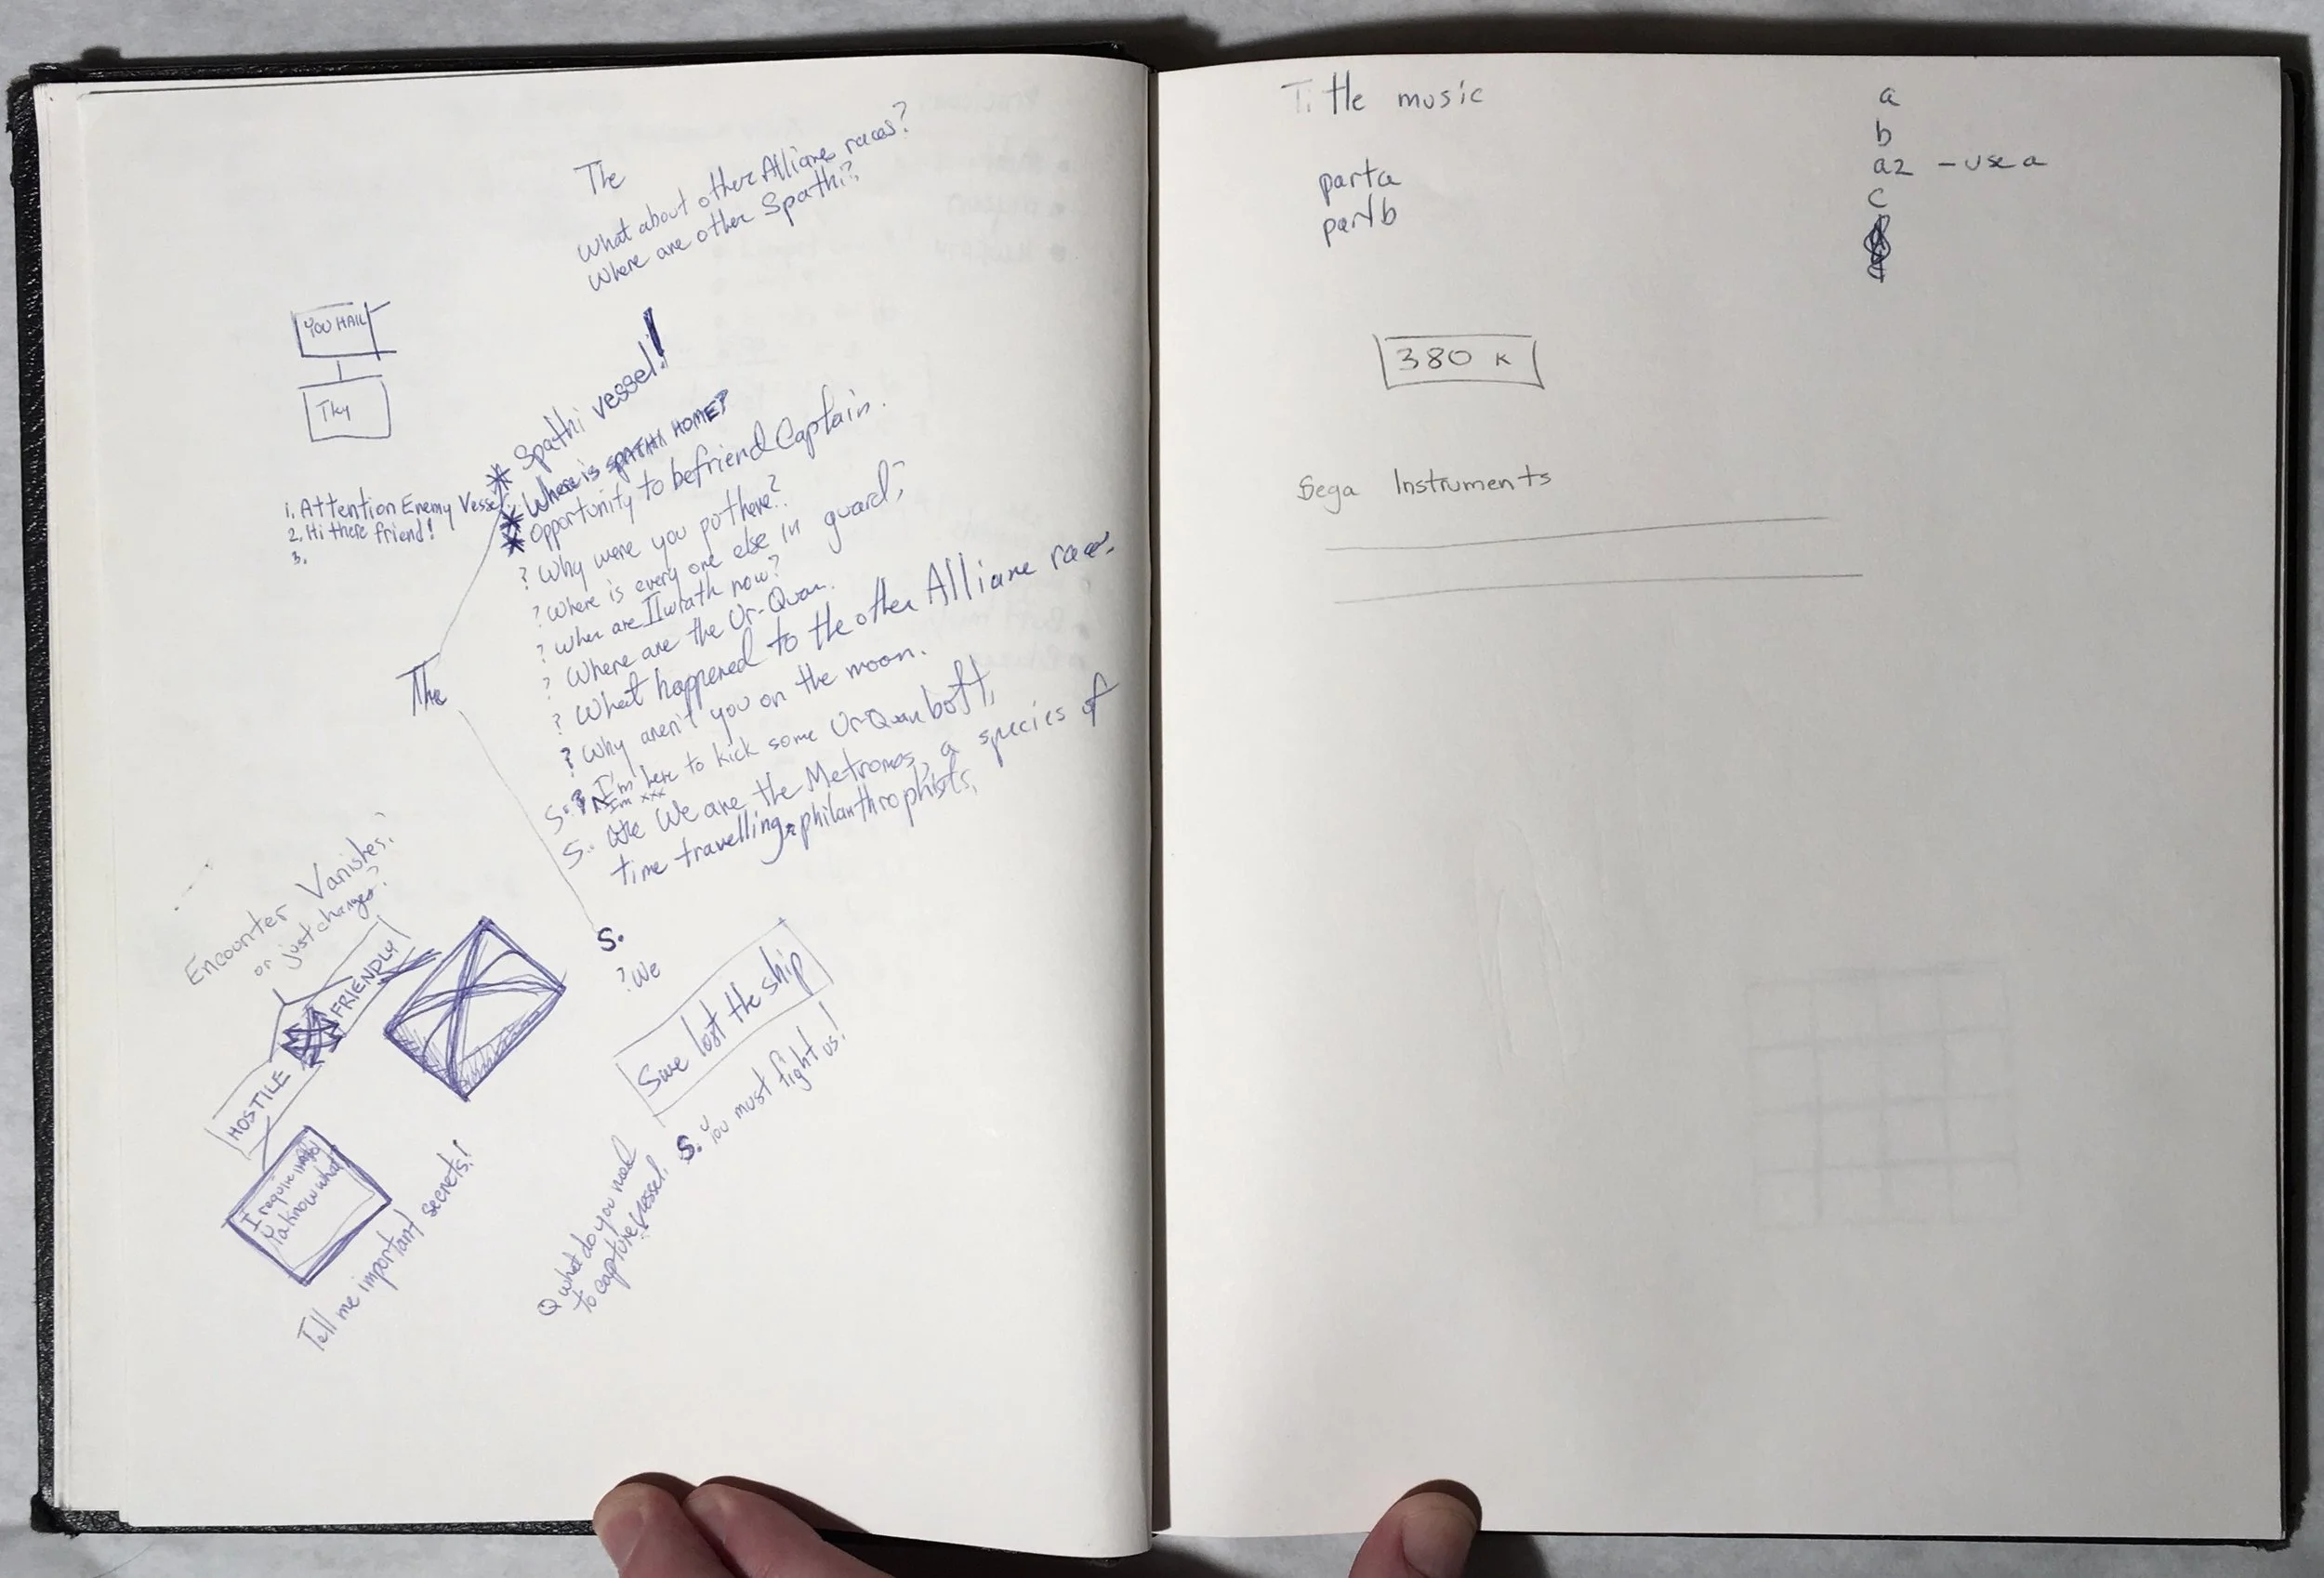 The
What about other Alliane races?
Where are other Spathi?
YOU HAIL
1. Attention Enemy Vessel
2. Hi there friend!
3.
* Spathi vessel!
* Where is SPATHI HOME?
* Opportunity to befriend Captain.
? Why were you put here?
? Where is every one else in guard;
? Wher are Ilwrath now?
? Where are the Ur-Quan.
? What happened to the other Alliane races
? Why aren't you on the moon.
S: ? I'm here to kick some Ur-Quan bott,
I'm xxx
S. We are the Metromos, a species of
time travelling philanthrophists,
The
S.
? We
Encounter Vanishes?
or just changes?
FRIENDLY
HOSTILE
I require
Ya know what
Tell me important secrets!
Swe lost the ship
S. You must fight us!
Q what do you need
to capture vessel.
Title music
part a
part b
a
b
a2 - use a
c
380 K
Sega Instruments